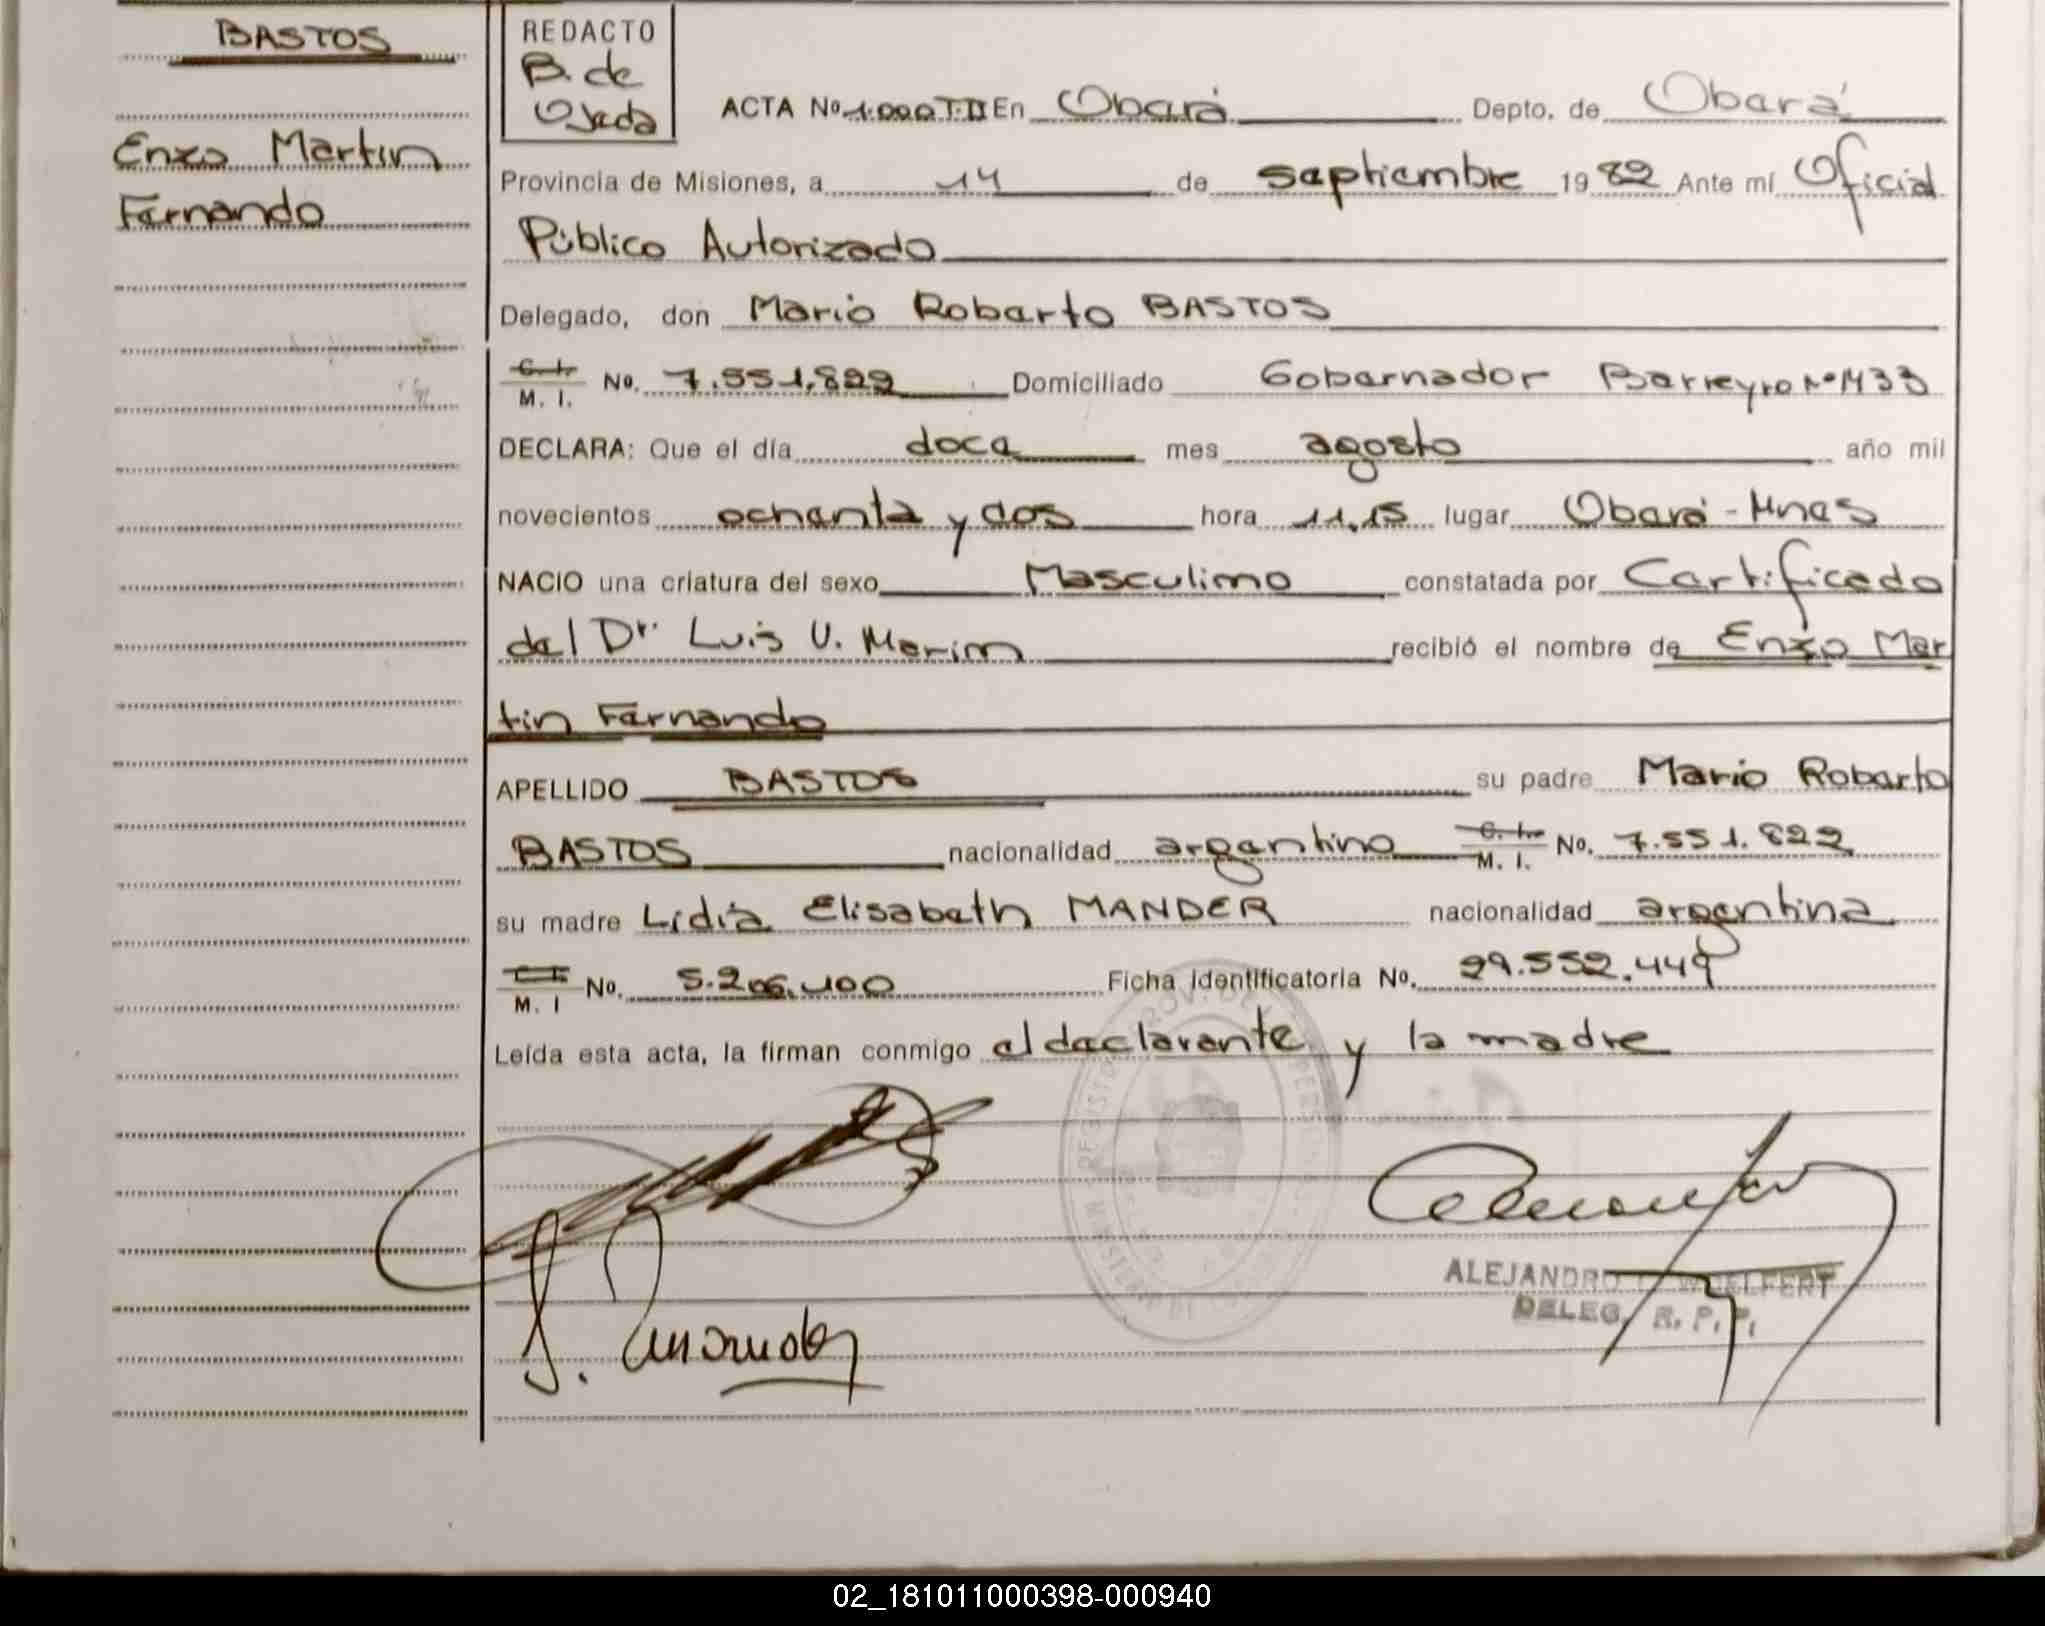 BASTOS
Enzo Martin
Fernando
REDACTO
B. de
Ojeda
ACTA No 1.000 T.II En Oberá Depto. de Oberá
Provincia de Misiones, a 14 de septiembre 19 82 Ante mí Oficial
Público Autorizado
Delegado, don Mario Roberto BASTOS
C. I.
M. I. No. 7.551.822 Domiciliado Gobernador Barreyro Nº 1433
DECLARA: Que el día doce mes agosto año mil
novecientos ochenta y dos hora 11,15 lugar Oberá - Mnes
NACIO una criatura del sexo Masculino constatada por Certificado
del Dr. Luis U. Merim recibió el nombre de Enzo Mar
tin Fernando
APELLIDO BASTOS su padre Mario Roberto
BASTOS nacionalidad argentino C. I. M. I. No. 7.551.822
su madre Lidia Elisabeth MANDER nacionalidad argentina
C. I.
M. I No. 5.206.400 Ficha identificatoria No. 29.552.449
Leída esta acta, la firman conmigo el declarante y la madre
ALEJANDRO WOELFERT
DELEG. R. P. P.
02_181011000398-000940